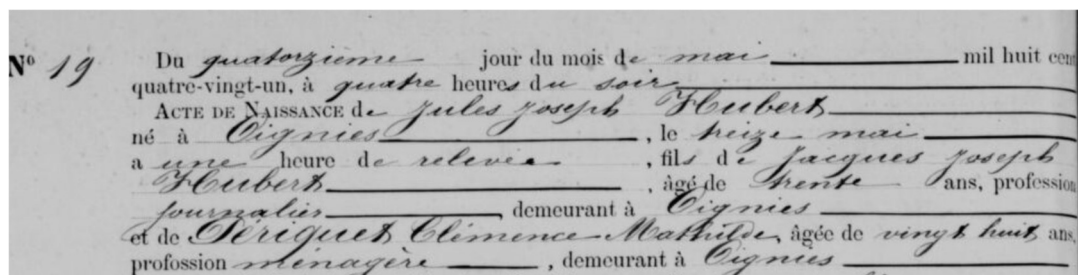 Nº 19 Du quatorzième jour du mois de mai mil huit cent
quatre-vingt-un, à quatre heures du soir
ACTE DE NAISSANCE de Jules Joseph Hubert
né à Oignies, le treize mai
a une heure de relevée, fils de Jacques Joseph
Hubert, âgé de trente ans, profession
journalier, demeurant à Oignies
et de Périquet Clémence Mathilde, âgée de vingt huit ans,
profossion ménagère, demeurant à Oignies